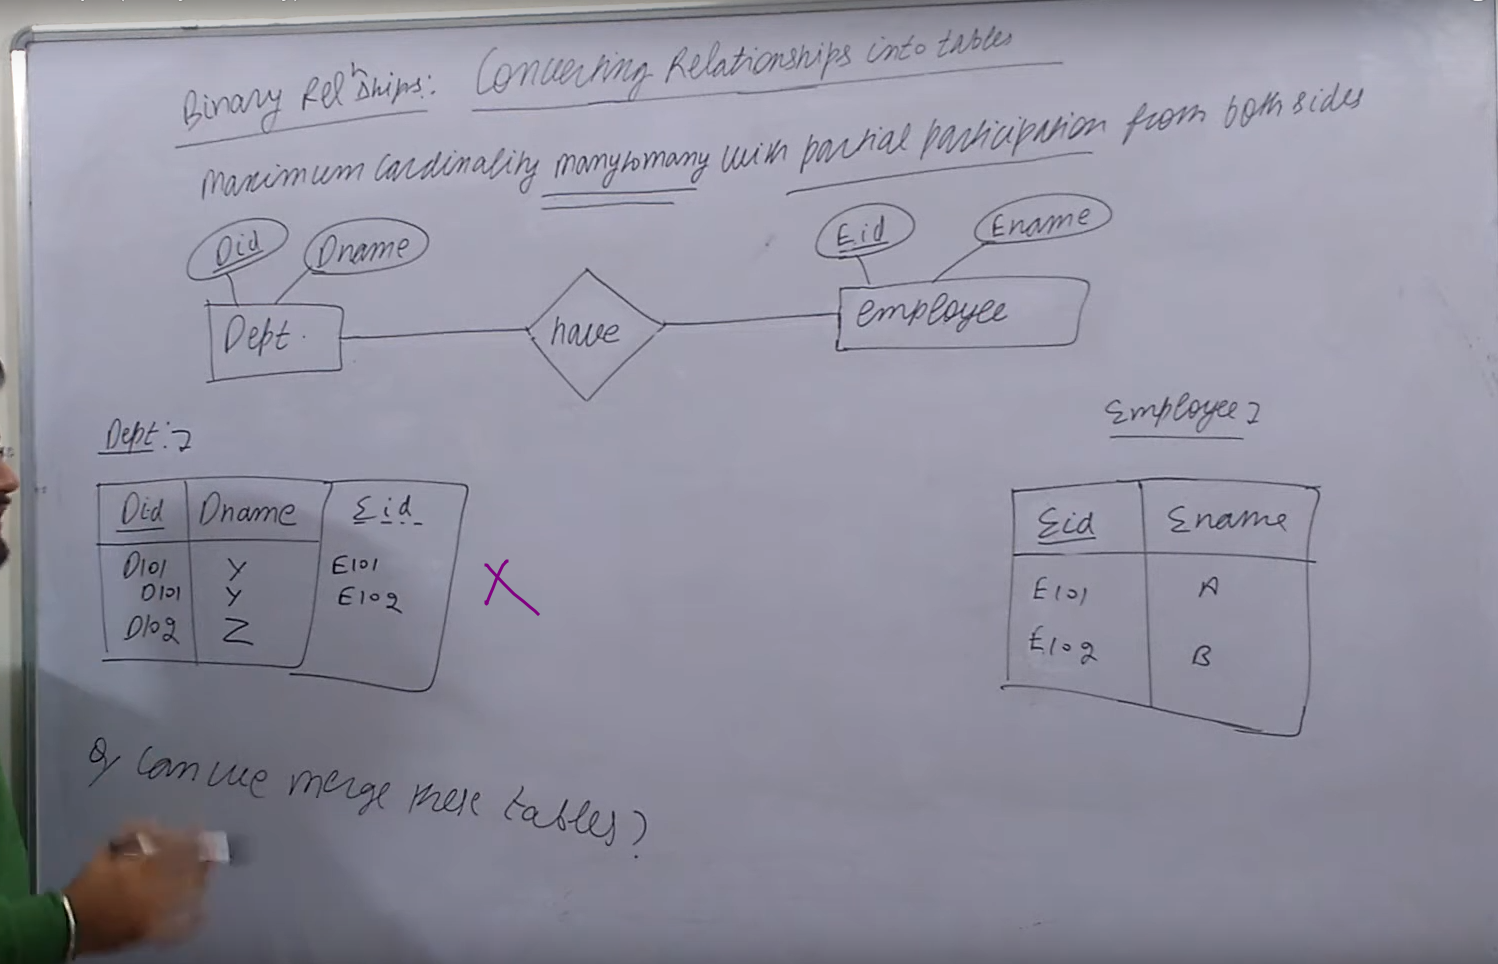 Binary Relnships: Converting Relationships into tables
maximum cardinality many to many with partial participation from both sides
Did Dname Eid Ename
Dept. have employee
Dept:→ Employee→
Did Dname Eid
D101 Y E101
D101 Y E102
D102 Z
X
Eid Ename
E101 A
E102 B
Q, Can we merge these tables?